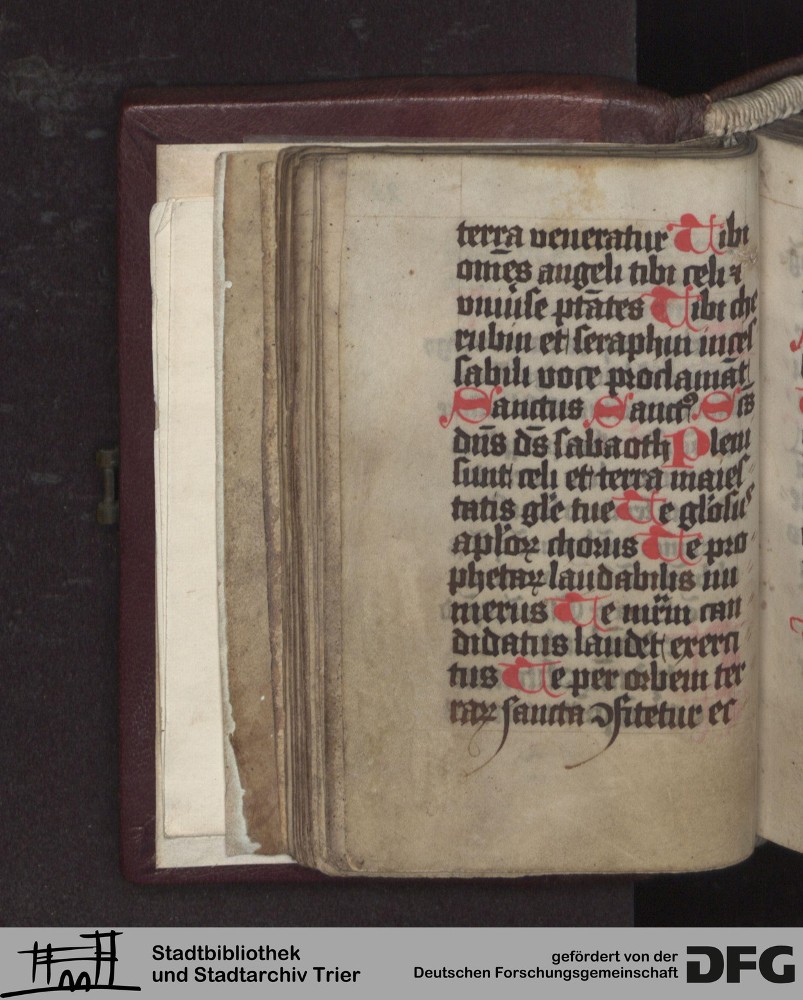 terra veneratur Tibi
om̅es angeli tibi celi ⁊
vniu̅se pt̅ates Tibi che
rubin et seraphin inces
sabili voce proclama̅t
Sanctus Sanctꝰ Sc̅s
dn̅s ds̅ sabaoth Pleni
sunt celi et terra maies
tatis gl̅e tue Te gl̅osuˢ
apl̅oꝝ chorus Te pro
phetaꝝ laudabilis nu
merus Te mr̅m can
didatus laudet exerci
tus Te per orbem ter
raꝝ sancta ꝯfitetur ec
Stadtbibliothek
und Stadtarchiv Trier
gefördert von der
Deutschen Forschungsgemeinschaft
DFG